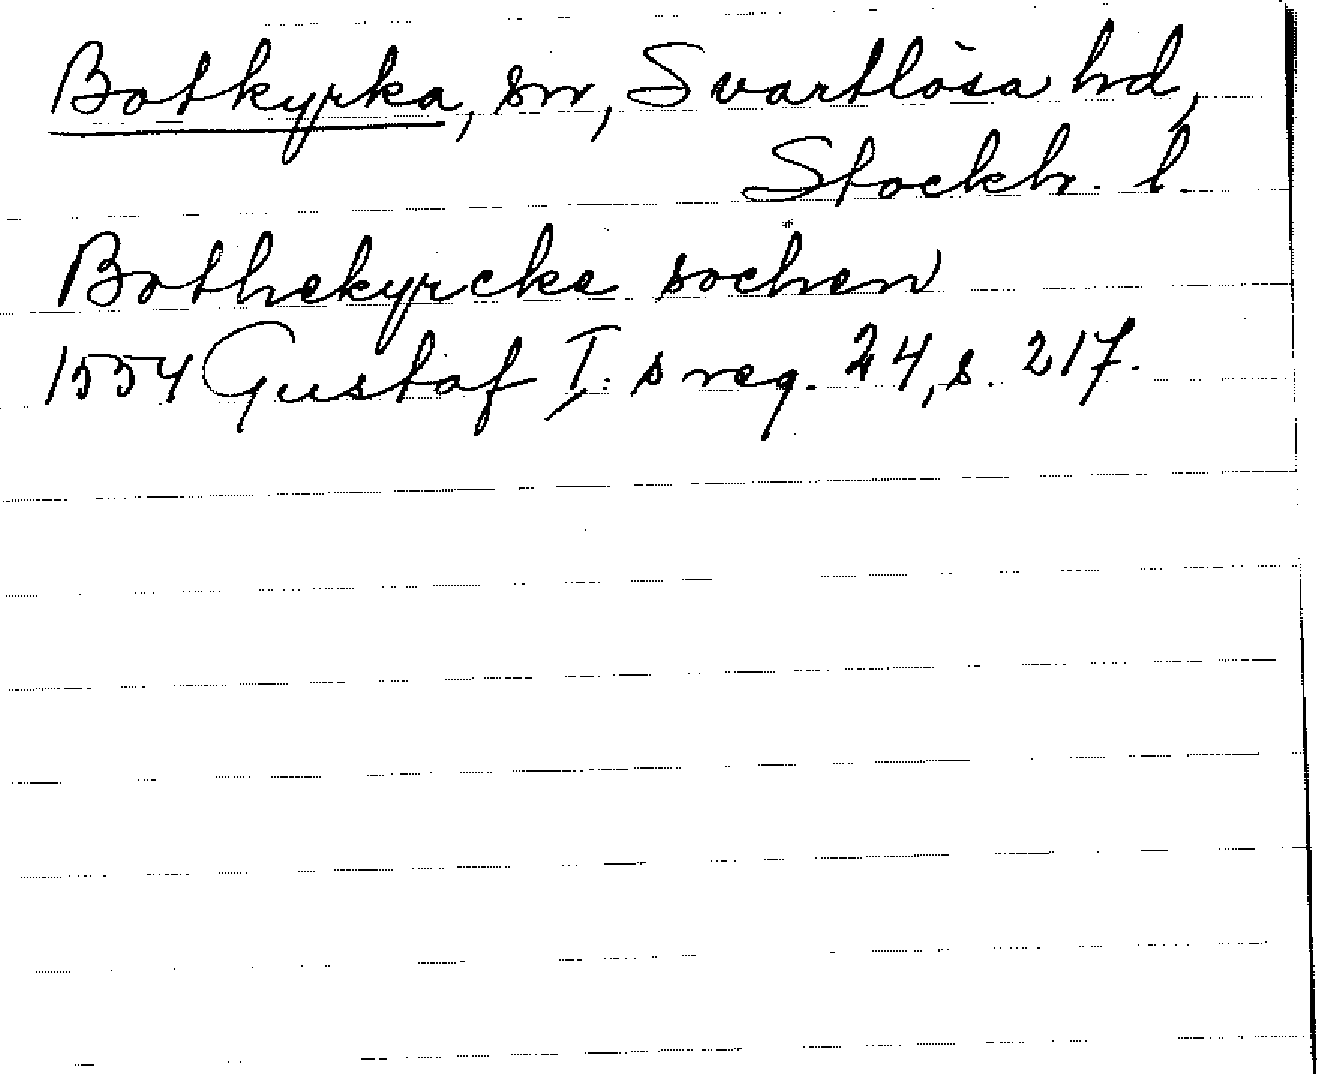 Botkyrka, sn, Svartlösa hd,
Stockh. l.
Bothekyrcke sochen
1554 Gustaf I:s reg. 24, s. 217.